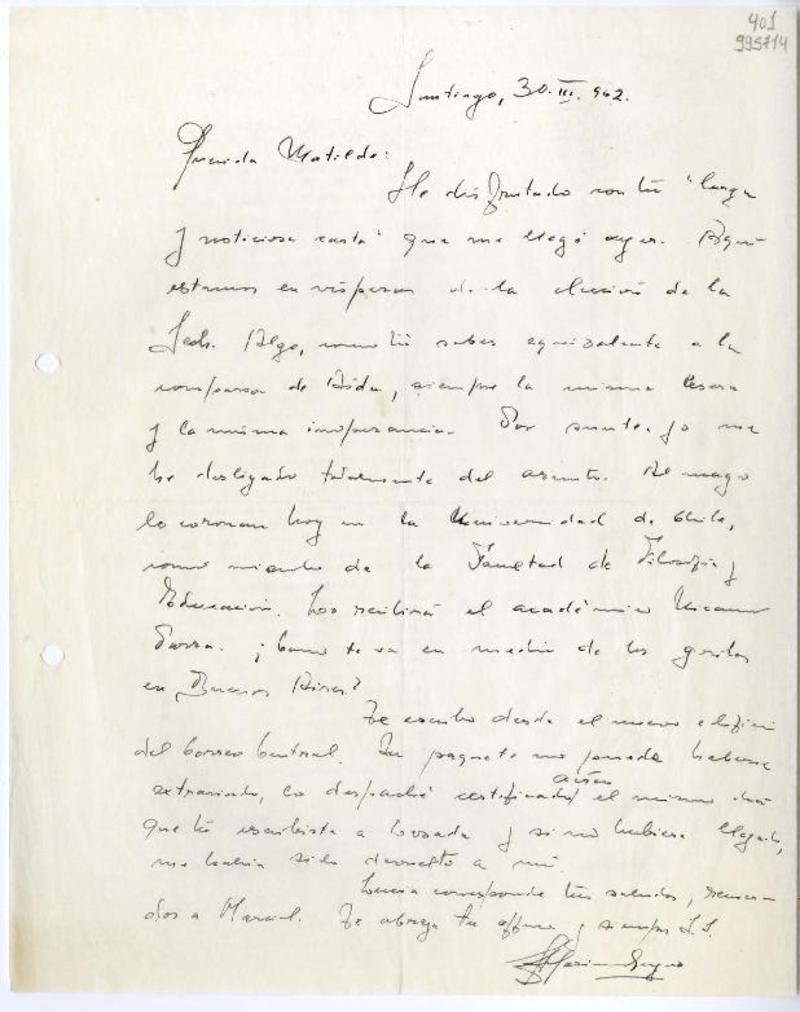 401
995714
Santiago, 30. III. 962.
Querida Matilde:
He disfrutado con tu "larga
y noticiosa carta" que me llegó ayer. Aquí
estamos en vísperas de la elección de la
Sech. Algo, como tú sabes equivalente a la
comparsa de Aida, siempre la misma lesera
y la misma inoperancia. Por suerte yo me
he desligado totalmente del asunto. Al mago
lo coronan hoy en la Universidad de Chile,
como miembro de la Facultad de Filosofía y
Educación. Los recibirá el académico Nicanor
Parra. ¿Cómo te va en medio de los gorilas
en Buenos Aires?
Te escribo desde el nuevo edificio
del Correo Central. Tu paquete no puede haberse
extraviado, lo despaché certificado aéreo el mismo día
que tú escribiste a Losada y si no hubiera llegado,
me habría sido devuelto a mí.
corresponde tus saludos, recuer-
dos a Marcial. Te abraza tu affmo. y siempre S.S.